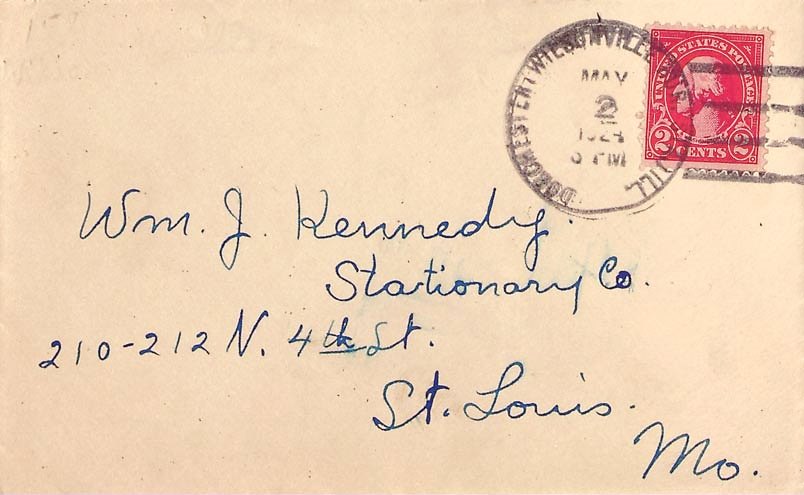 DORCHESTER WILSONVILLE
ILL
MAY
2
1924
PM
UNITED STATES POSTAGE
2 CENTS 2
Wm. J. Kennedy.
Stationary Co.
210-212 N. 4th St.
St. Louis.
Mo.